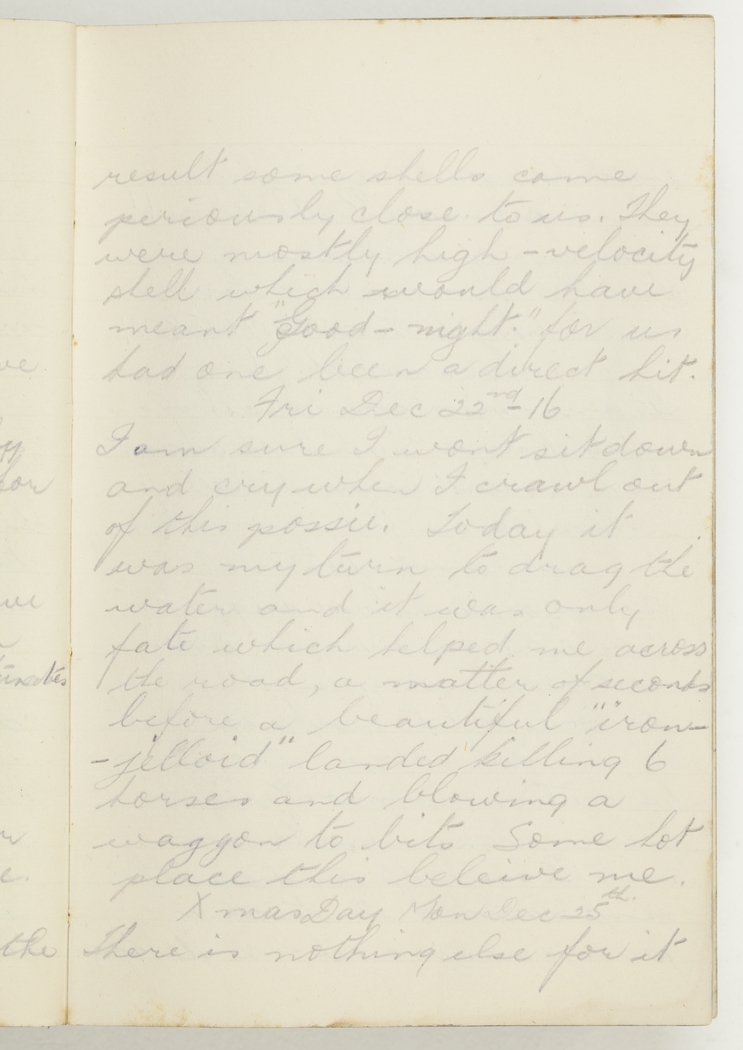 result some shells came
periously close to us. They
were mostly high-velocity
shell which would have
meant "Good-night." for us
had one been a direct hit.
Fri Dec 22nd-16
I am sure I wont sit down
and cry when I crawl out
of this possie. Today it
was my turn to drag the
water and it was only
fate which helped me across
the road, a matter of seconds
before a beautiful "iron-
-jelloid" landed killing 6
horses and blowing a
waggon to bits Some hot
place this beleive me.
Xmas Day Mon Dec 25th
There is nothing else for it